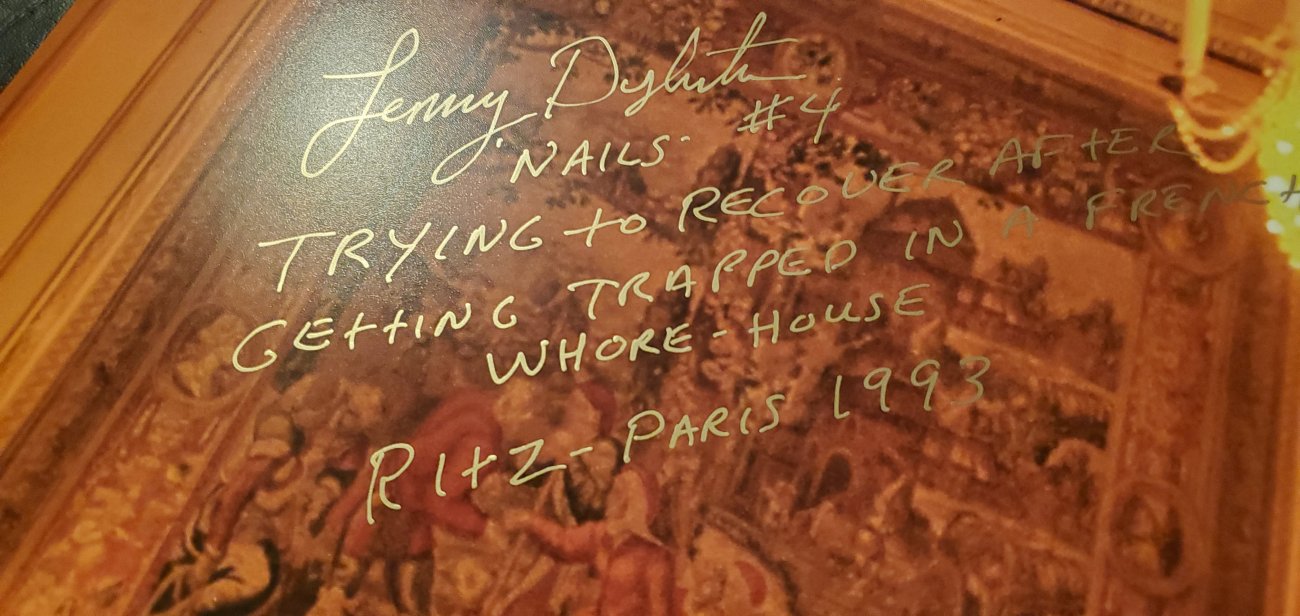 Lenny Dykstra
"NAILS" #4
TRYING to RECOVER AFTER
GETTING TRAPPED IN A FRENCH
WHORE-HOUSE
RITZ-PARIS 1993